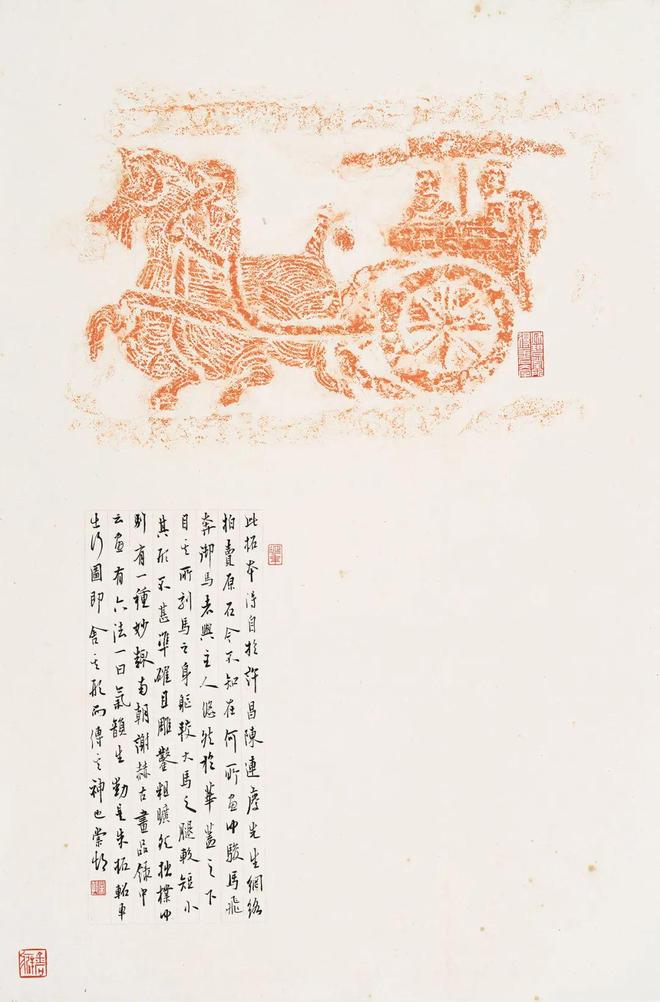 此拓本得自於許昌陳連先生網絡
拍賣原石今不知在何所畫中駿馬飛
奔御馬者與主人悠然於華蓋之下
目其所刻馬之身軀較大馬之腿較短小
其形不甚準確且雕鑿粗曠然拙樸中
別有一種妙趣南朝謝赫古畫品錄中
云畫有六法一曰氣韻生動是朱拓軺車
出行圖即舍其形而傳其神也崇